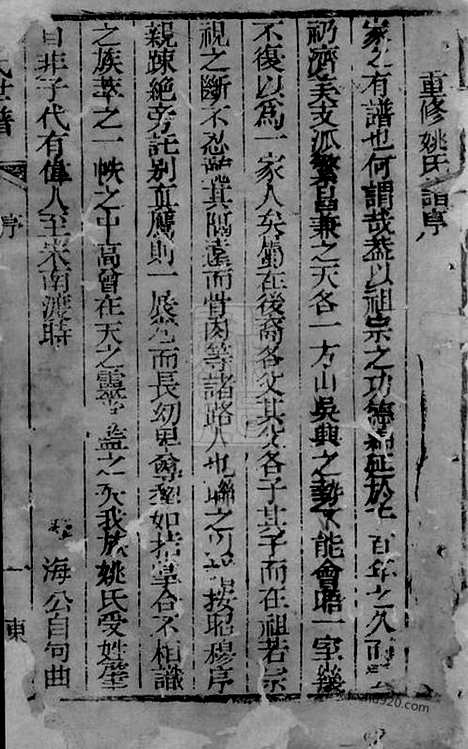 重修姚氏譜序
家之有譜也何謂哉蓋以祖宗之功德綿延於千百年之久而
礽濟美支派繁昌兼之天各一方山吳興之勢不能會晤一室幾
不復以為一家人矣屬在後裔各父其父各子其子而在祖若宗
視之斷不忍聽其隔遠而骨肉等諸路人也聯之以譜按昭穆序
親踈絕旁託別血屬則一展卷而長幼卑尊犂如指掌合不相識
之族萃之一帙之中高曾在天之靈 藎之矣我族姚氏受姓肇
自 子代有偉人至宋南渡時 海公自句曲
氏世譜
序
一
東